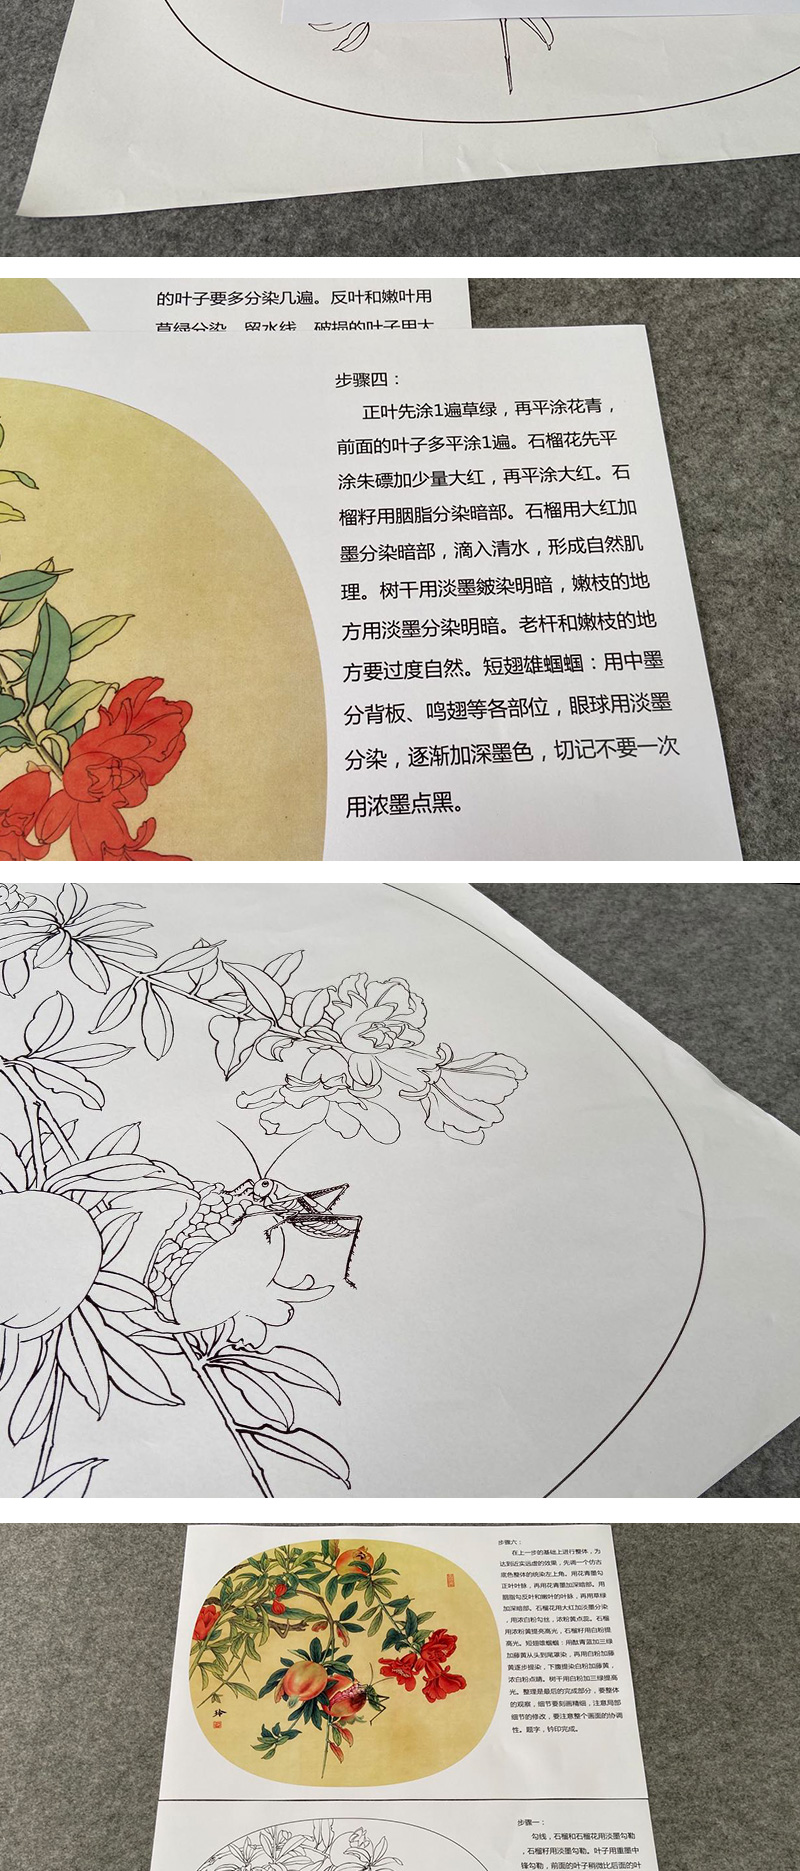 的叶子要多分染几遍。反叶和嫩叶用
草绿分染，留水线。破损的叶子用大
步骤四：
正叶先涂1遍草绿，再平涂花青，
前面的叶子多平涂1遍。石榴花先平
涂朱磦加少量大红，再平涂大红。石
榴籽用胭脂分染暗部。石榴用大红加
墨分染暗部，滴入清水，形成自然肌
理。树干用淡墨皴染明暗，嫩枝的地
方用淡墨分染明暗。老杆和嫩枝的地
方要过度自然。短翅雄蝈蝈：用中墨
分背板、鸣翅等各部位，眼球用淡墨
分染，逐渐加深墨色，切记不要一次
用浓墨点黑。
步骤六：
在上一步的基础上进行整体，为
达到近实远虚的效果，先调一个仿古
底色整体的统染左上角。用花青墨勾
正叶叶脉，再用花青墨加深暗部。用
胭脂勾反叶和嫩叶的叶脉，再用草绿
加深暗部。石榴花用大红加淡墨分染
，用浓白粉勾丝，浓粉黄点蕊。石榴
用浓粉黄提亮高光，石榴籽用白粉提
高光。短翅雄蝈蝈：用酞青蓝加三绿
加藤黄从头到尾罩染，再用白粉加藤
黄逐步提染，下腹提染白粉加藤黄，
浓白粉点睛。树干用白粉加三绿提高
光。整理是最后的完成部分，要整体
的观察，细节要刻画精细，注意局部
细节的修改，要注意整个画面的协调
性。题字，钤印完成。
步骤一：
勾线，石榴和石榴花用淡墨勾勒
，石榴籽用淡墨勾勒。叶子用重墨中
锋勾勒，前面的叶子稍微比后面的叶